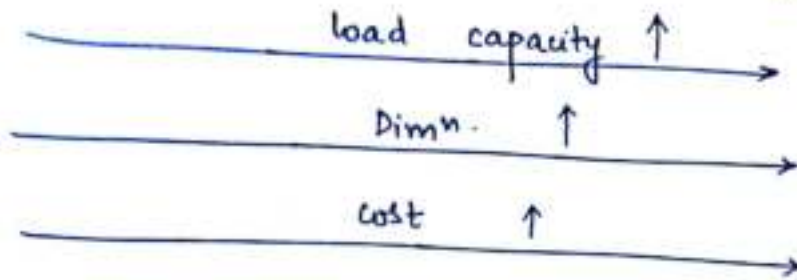 load capacity ↑
Dimn. ↑
cost ↑